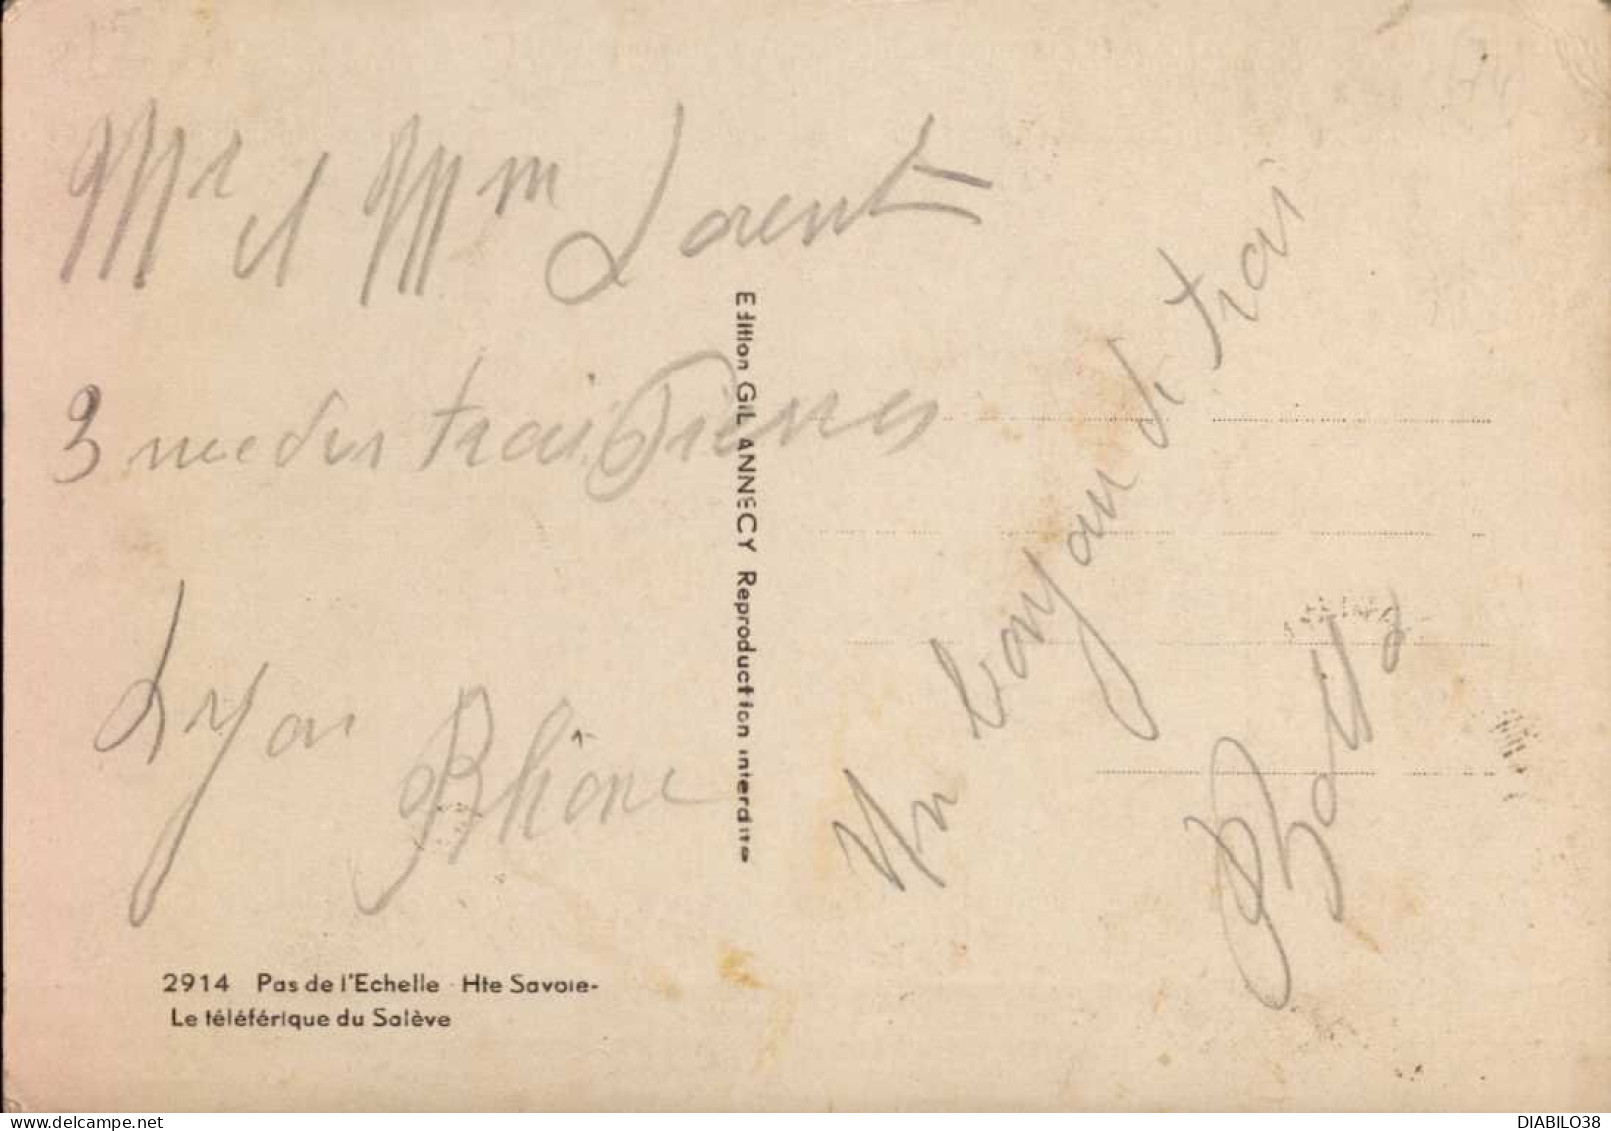 Mr et Mm Lorent
3 rue des trois Pierres
Lyon Rhône
Edition GIL ANNECY Reproduction interdite
Un bonjour de trai
2914 Pas de l'Echelle - Hte Savoie-
Le téléférique du Salève
DIABILO38